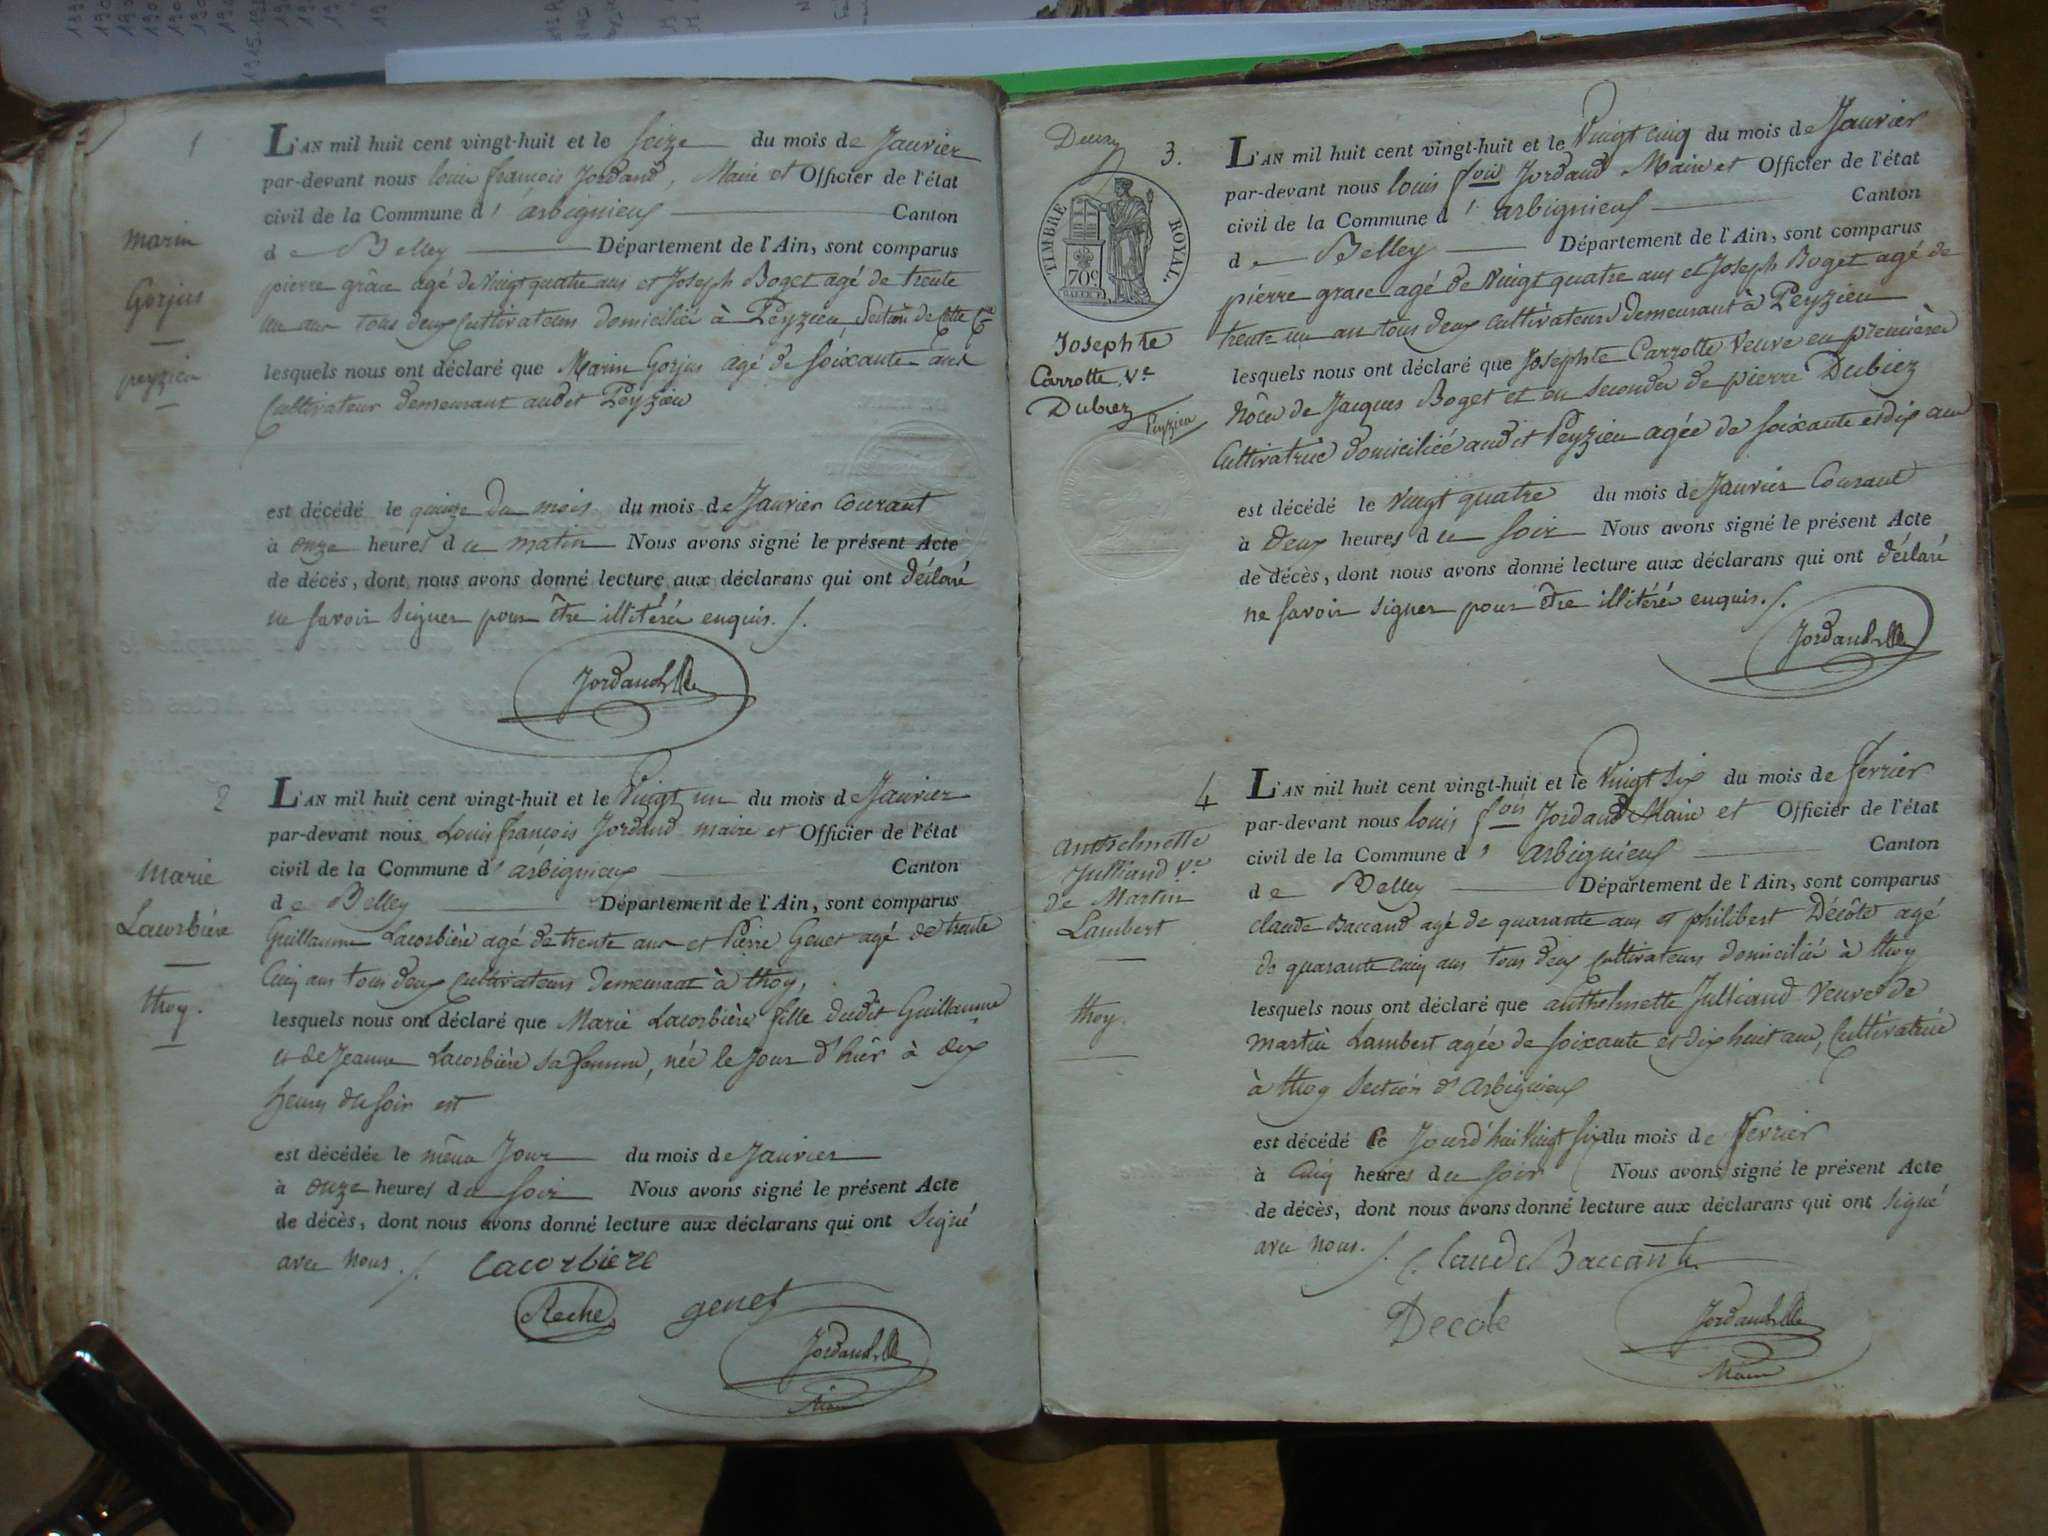 1
L'AN mil huit cent vingt-huit et le seize du mois de Janvier
par-devant nous louis françois Jordand, Maire et Officier de l'état
civil de la Commune d' arbignieux Canton
de Belley Département de l'Ain, sont comparus
pierre grâce agé de vingt quatre ans et Joseph Boget agé de trente
un ans tous deux Cultivateurs domiciliés à Peyzieu, Section de cette Cne
lesquels nous ont déclaré que Marin Gorjus agé de soixante ans
Cultivateur demeurant audit Peyzieu
est décédé le quinze du mois du mois de Janvier Courant
à onze heures du matin Nous avons signé le présent Acte
de décès, dont nous avons donné lecture aux déclarans qui ont déclaré
ne savoir signer pour être illitérés enquis.
Jordand
marin
Gorjus
peyzieu
2
L'AN mil huit cent vingt-huit et le Vingt un du mois de Janvier
par-devant nous Louis françois Jordand maire et Officier de l'état
civil de la Commune d' arbignieux Canton
de Belley Département de l'Ain, sont comparus
Guillaume Lacorbière agé de trente ans et Pierre Genet agé de trente
Cinq ans tous deux Cultivateurs demeurant à thoy,
lesquels nous ont déclaré que Marie Lacorbière fille dudit Guillaume
et de Jeanne Lacorbière sa femme, née le Jour d'hier à dix
heures du soir est
est décédée le même Jour du mois de Janvier
à onze heures du soir Nous avons signé le présent Acte
de décès, dont nous avons donné lecture aux déclarans qui ont signé
avec nous. Lacorbiere
Reche genet
Jordand
Maire
Marie
Lacorbière
thoy.
3.
TIMBRE ROYAL.
70c
Josephte
Carrotte Ve
Dubiez
Peyzieu
L'AN mil huit cent vingt-huit et le Vingt cinq du mois de Janvier
par-devant nous louis fois Jordand Maire et Officier de l'état
civil de la Commune d' arbignieux Canton
de Belley Département de l'Ain, sont comparus
pierre grace agé de vingt quatre ans et Joseph Boget agé de
trente un an tous deux cultivateurs demeurant à Peyzieu
lesquels nous ont déclaré que Josephte Carrotte Veuve en premières
Nôces de Jacques Boget et en secondes de pierre Dubiez
Cultivatrice domiciliée audit Peyzieu agée de soixante et dix ans
est décédé le vingt quatre du mois de Janvier Courant
à deux heures du soir Nous avons signé le présent Acte
de décès, dont nous avons donné lecture aux déclarans qui ont déclaré
ne savoir signer pour être illitérés enquis.
Jordand
4
anthelmette
Julliand Ve
de Martin
Lambert
thoy.
L'AN mil huit cent vingt-huit et le Vingt six du mois de fevrier
par-devant nous louis fois Jordand Maire et Officier de l'état
civil de la Commune d' arbignieux Canton
de Belley Département de l'Ain, sont comparus
claude Baccand agé de quarante ans et philibert Décôte agé
de quarante cinq ans tous deux Cultivateurs domiciliés à thoy
lesquels nous ont déclaré que anthelmette Julliand Veuve de
martin Lambert agée de soixante et dix huit ans, Cultivatrice
à thoy Section d'arbignieux
est décédé le Jourd'hui Vingt six du mois de fevrier
à Cinq heures du soir Nous avons signé le présent Acte
de décès, dont nous avons donné lecture aux déclarans qui ont signé
avec nous. Claude Baccant
Decote Jordand
Maire